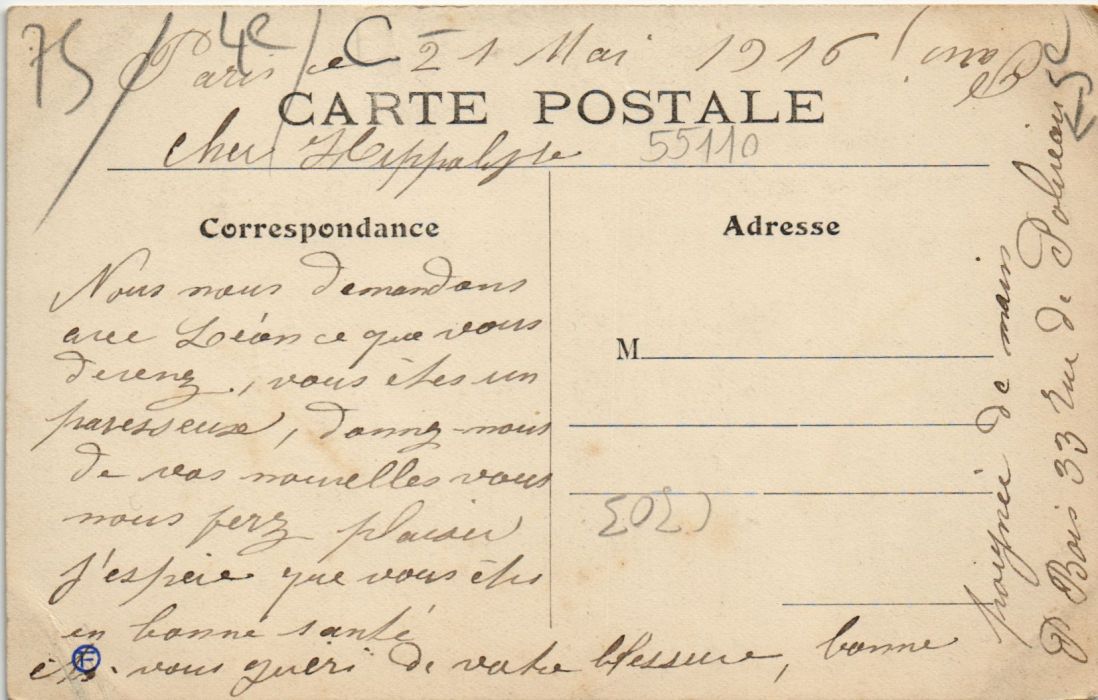 75/ 4e/ C-
Paris le 21 Mai 1916
5e
CARTE POSTALE
cher Hippolyte
55110
Correspondance
Adresse
Nous nous demandons
avec Léon ce que vous
devenez, vous êtes un
paresseux, donnez-nous
de vos nouvelles vous
nous ferez plaisir
j'espère que vous êtes
en bonne santé
F
êtes-vous guéri de votre blessure, bonne
poignée de main
P Bois 33 rue de
Paris
M